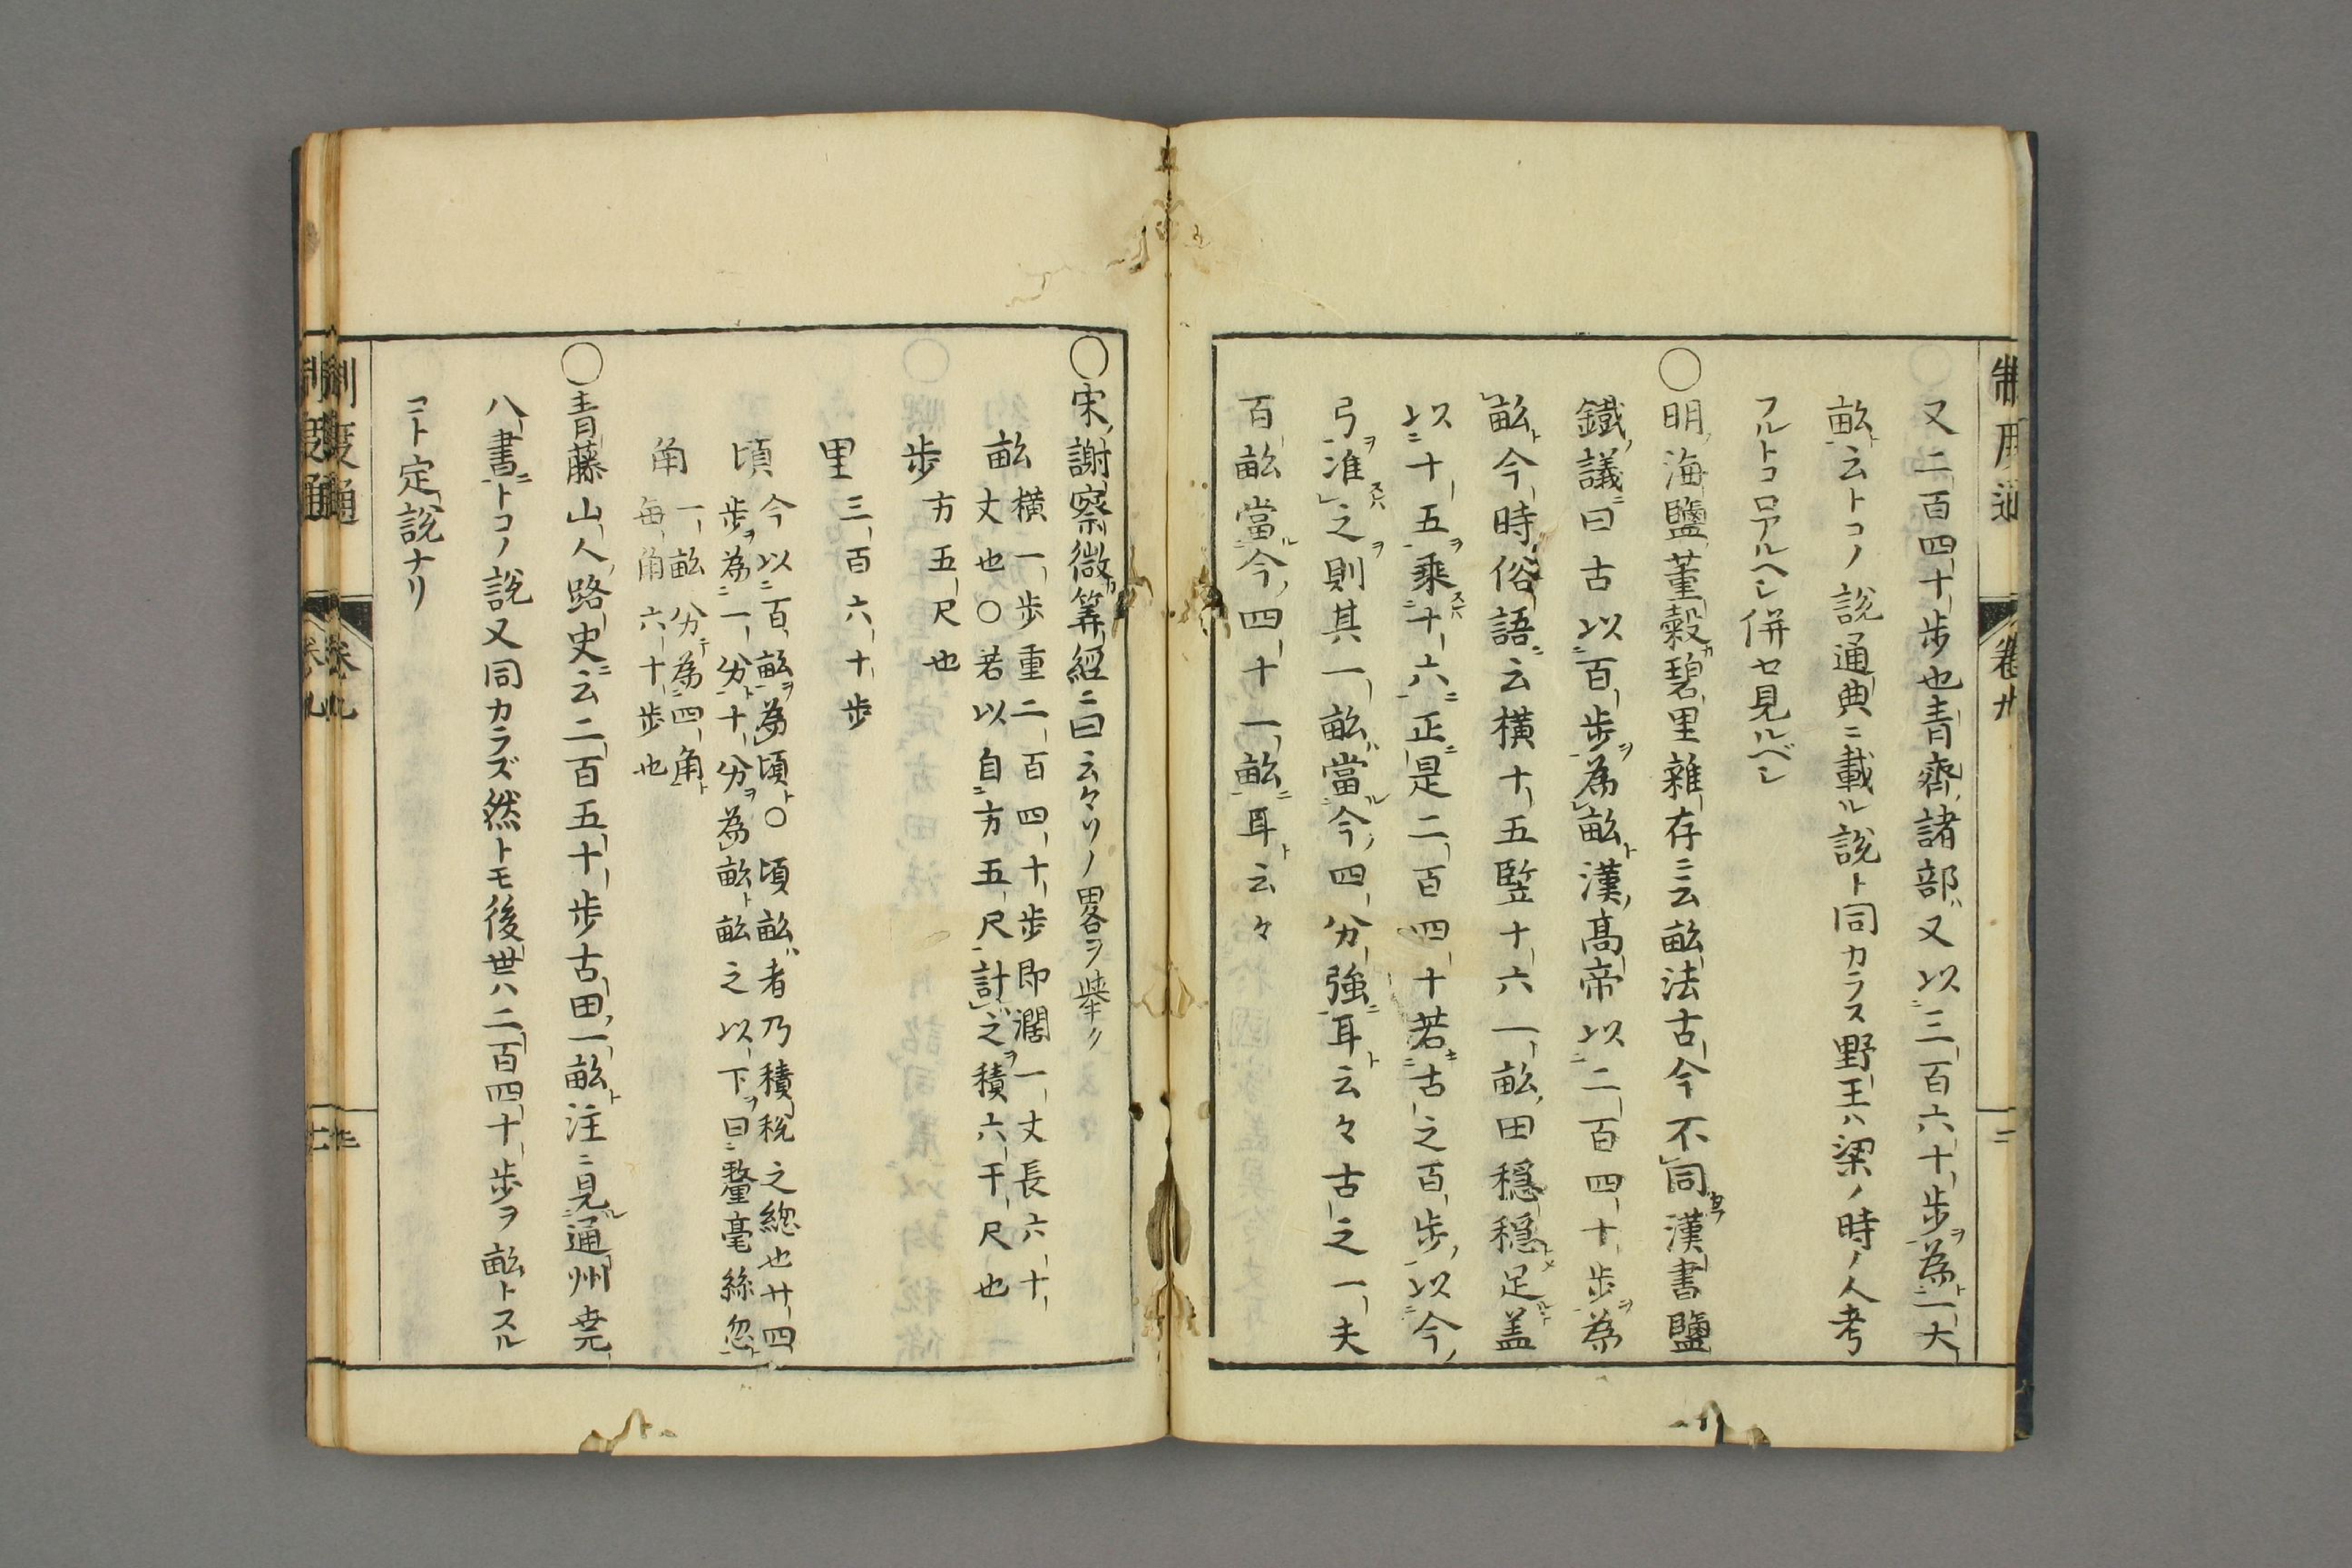 又二百四十歩也青齊諸部又以三百六十歩為一大
畝云トコノ説通典ニ載ル説ト同カラス野王ハ梁ノ時ノ人考
フルトコロアルヘシ併セ見ルベシ
○明海鹽董穀碧里雜存ニ云畝法古今不同漢書鹽
鐵議曰古以百歩為畝漢髙帝以二百四十歩為
畝今時俗語云横十五竪十六一畝田穏穏足盖
以十五乘十六正是二百四十若古之百歩以今
弓准之則其一畝當今四分強耳云々古之一夫
百畝當今四十一畝耳云々
○宋謝察微筭經ニ曰云々リノ畧ヲ舉〃
畝 横一歩重二百四十歩即濶一丈長六十
丈也○若以自方五尺計之積六千尺也
歩 方五尺也
里 三百六十歩
頃 今以百畝為頃○頃畝者乃積税之緫也廿四
歩為一分十分為畝畝之以下曰釐毫絲忽
角 一畝分為四角
毎角六十歩也
○青藤山人路史ニ云二百五十歩古田一畝注ニ見通州尭
八書トコノ説又同カラズ然トモ後世ハ二百四十歩ヲ畝トスル
コト定説ナリ
制度通
卷九